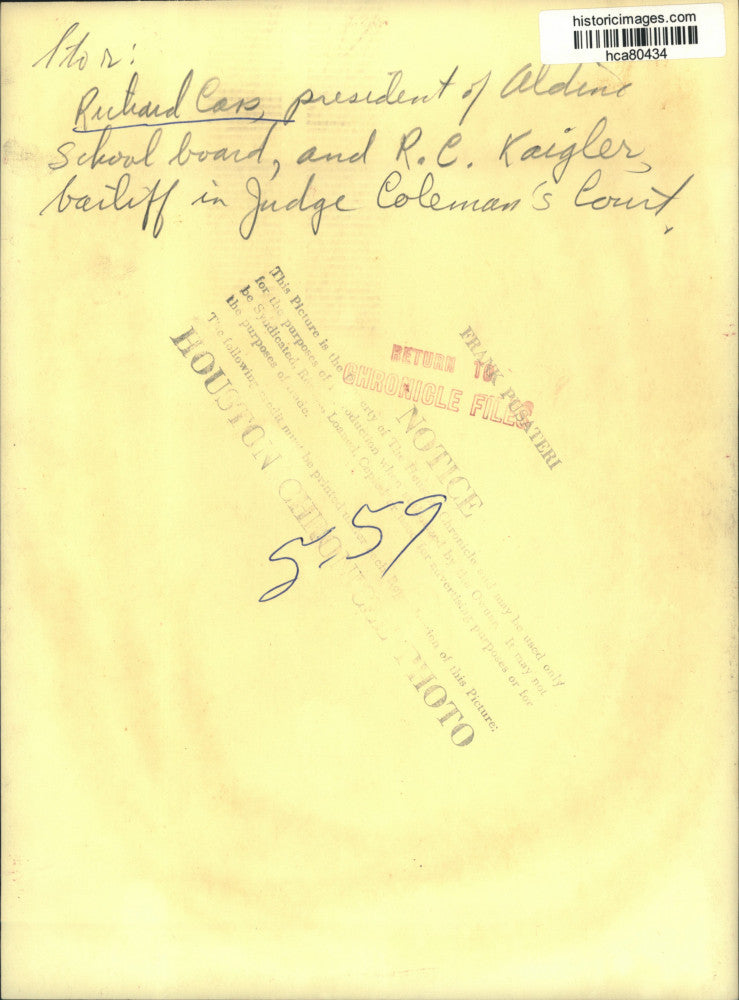 historicimages.com
hca80434
l to r:
Richard Cass, president of Aldine
School board, and R. C. Kaigler,
bailiff in Judge Coleman's Court.
FRANK PUSATERI
RETURN TO
CHRONICLE FILES
NOTICE
This Picture is the of The Chronicle and may be used only
for the purposes of when by the Owner. It may not
be Syndicated Loaned, for advertising purposes or for
the purposes of
The following credit must be printed of this Picture:
HOUSTON CHRONICLE PHOTO
5, 59